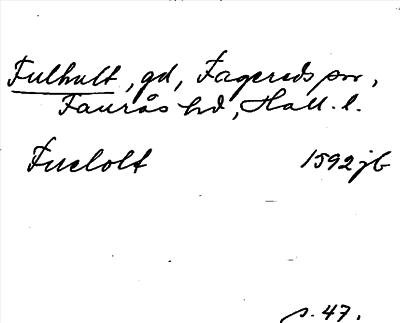 Fulhult, gd, Fagereds sn,
Faurås hd, Hall. l.
Fuelolt 1592 jb
s. 47.